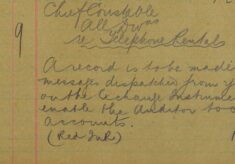 Chief Constable
All Divns
9
re Telephone Rentals
A record is to be made
messages dispatched from y
on the Exchange Instrume
enable the Auditor to c
accounts.
(Red Ink)